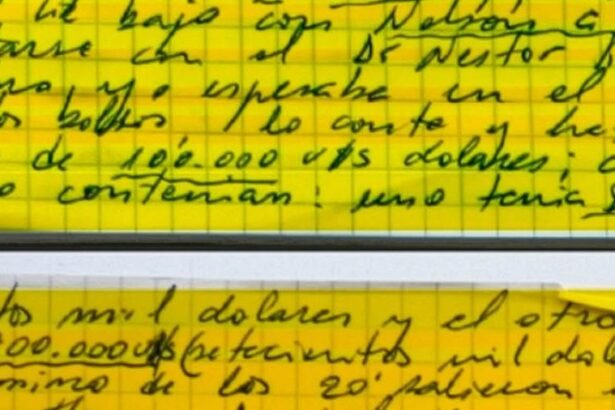 bajo con Nelson
con el Dr Nestor
y o esperaba en el
bolsos / lo conte y
de 100.000 u$s dolares;
contenian: uno tenia
tos mil dolares y el otro
00.000 u$s (setecientos mil
de los 20' salieron